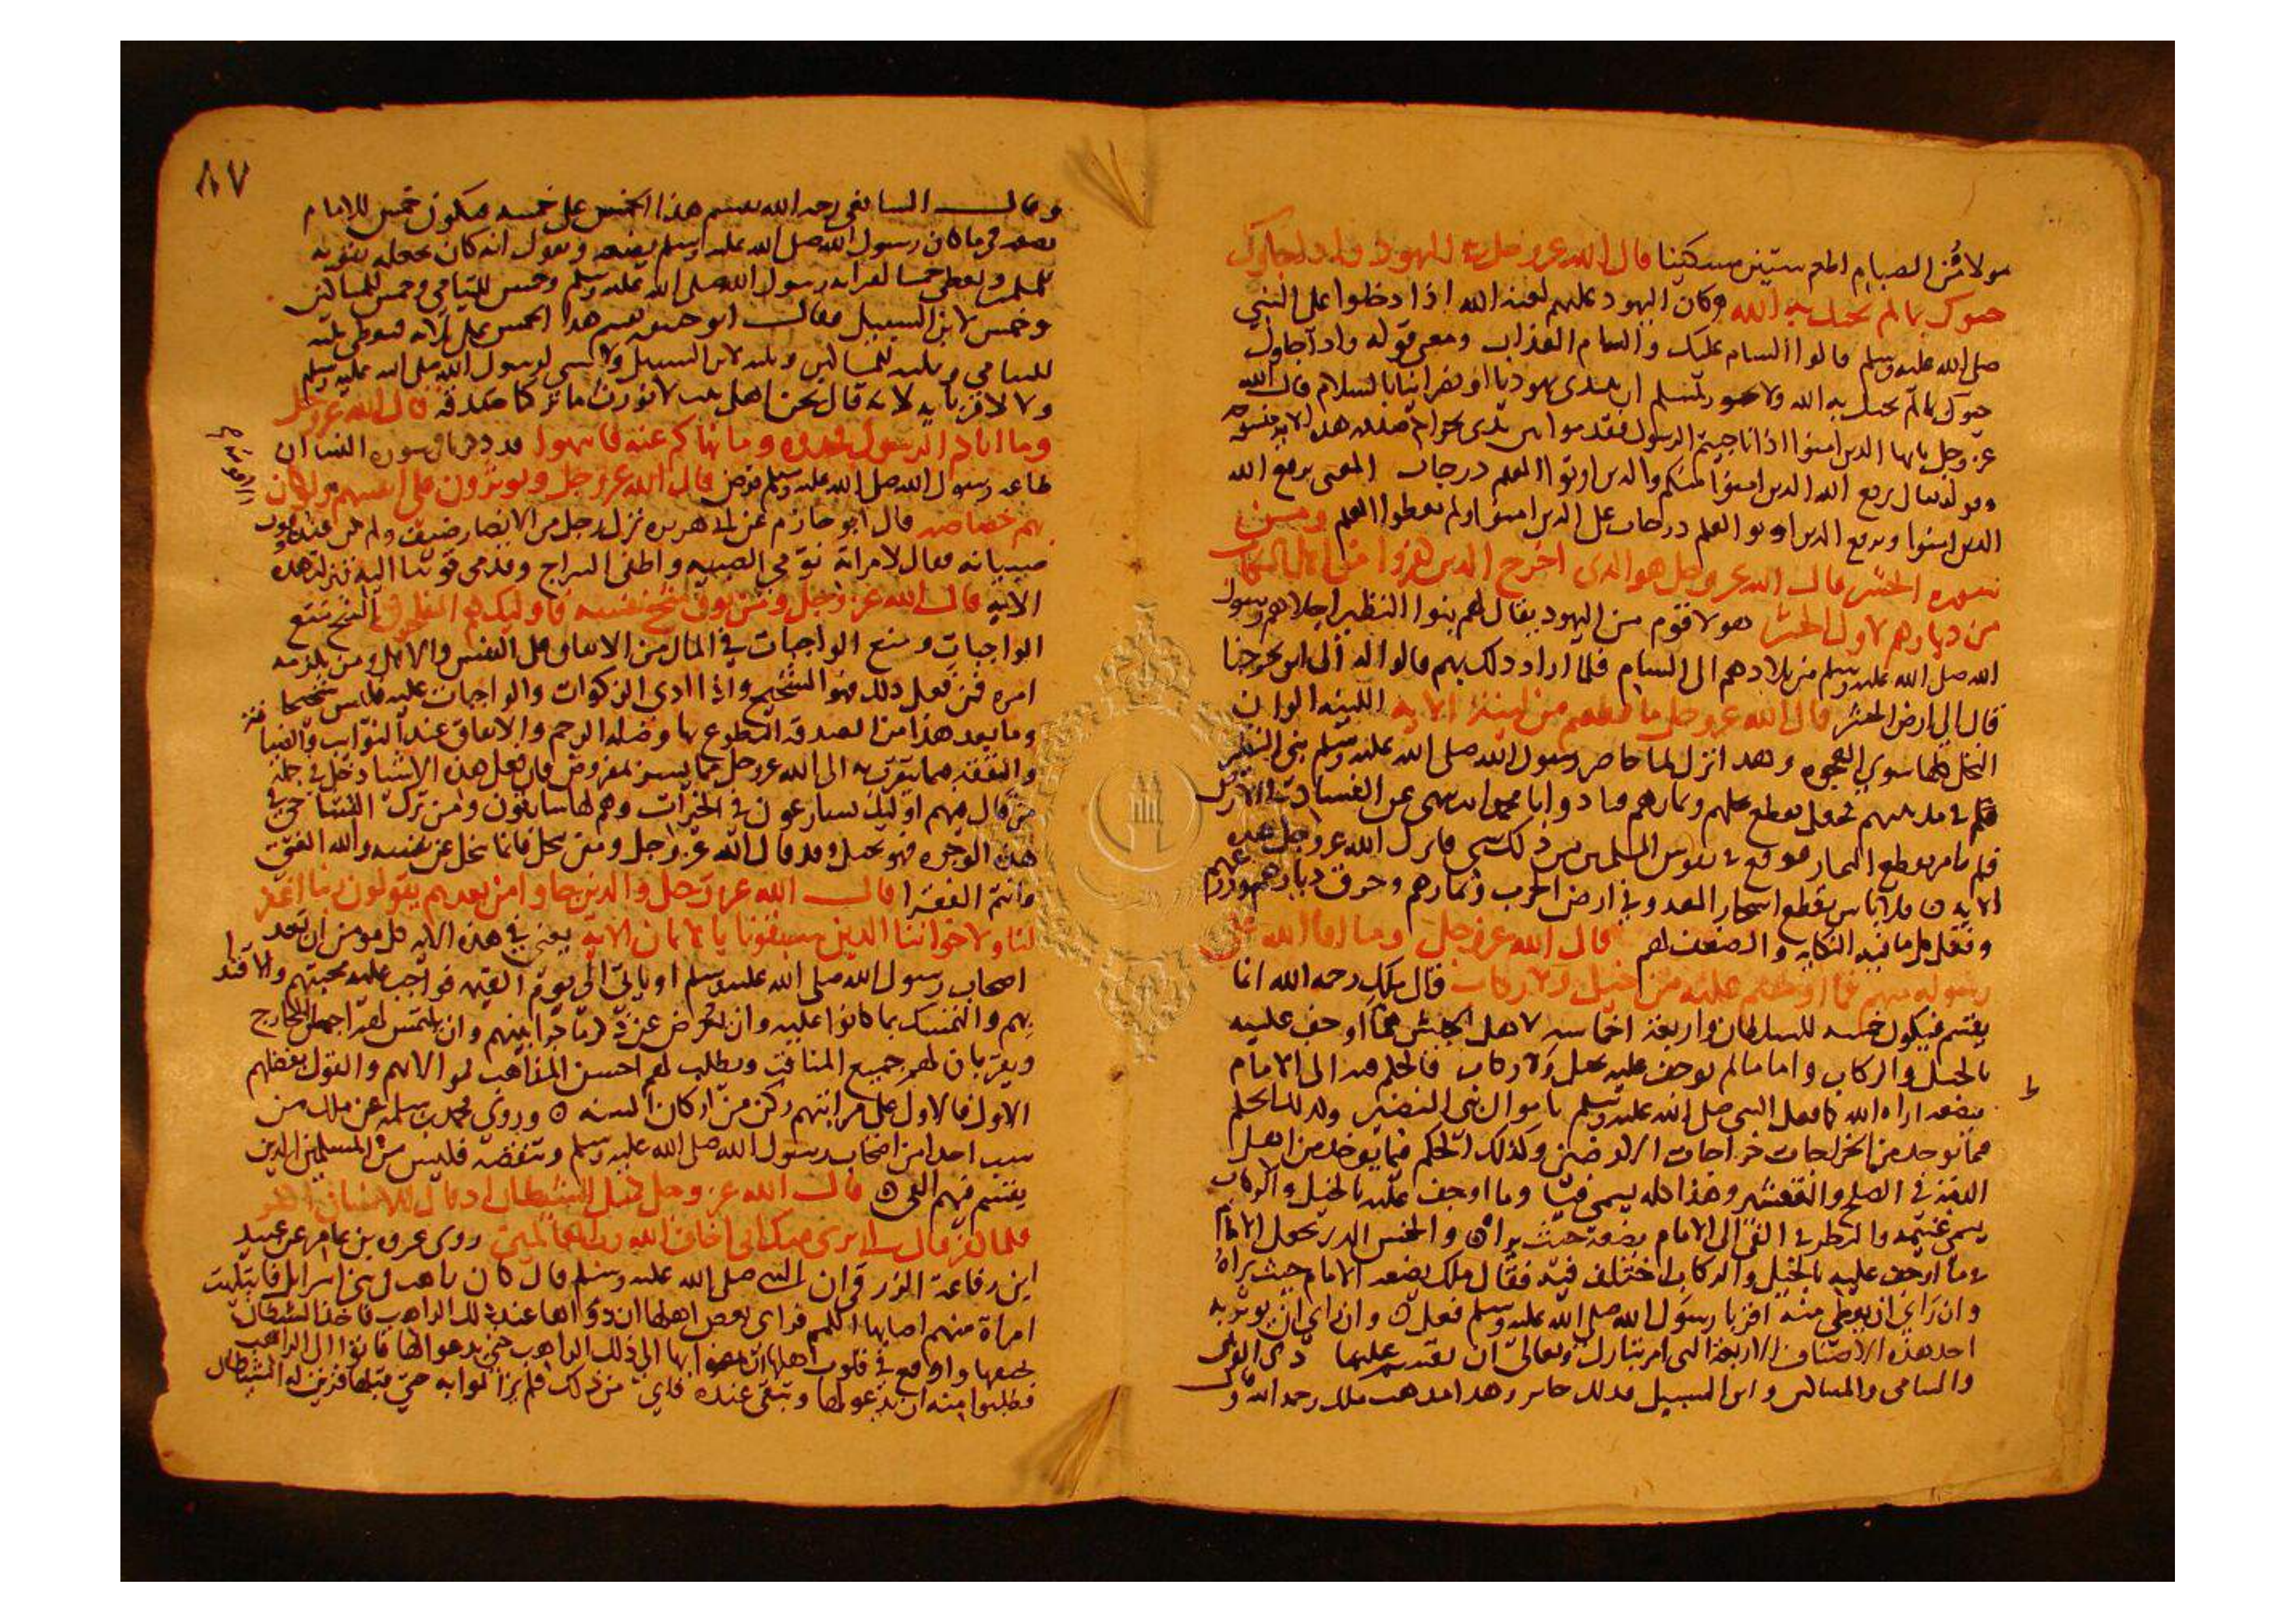 مولا مُن الصيام اطعم ستين مسكينا قال الله عز وجل في اليهود واذا جاوك
حيوك بما لم يحيك به الله وكان اليهود عليهم لعنة الله اذا دخلوا على النبي
صلى الله عليه وسلم قالوا السام عليك والسام العذاب ومعنى قوله واذا جاوك
حيوك بما لم يحيك به الله ولا يجوز لمسلم ان يبتدى يهوديا او نصرانيا بالسلام قال الله
عز وجل يايها الذين امنوا اذا ناجيتم الرسول فقدموا بين يدي نجواكم صدقة هذه الاية منسوخة
وقوله تعالى يرفع الله الذين امنوا منكم والذين اوتوا العلم درجات المعنى يرفع الله
الذين امنوا ويرفع الذين اوتوا العلم درجات على الذين امنوا ولم يعطوا العلم ومــن
سورة الحشر قال الله عز وجل هو الذي اخرج الذين كفروا من اهل الكتاب
من ديارهم لاول الحشر هولا قوم من اليهود يقال لهم بنوا النظير اجلاهم رسول
الله صلى الله عليه وسلم من بلادهم الى الشام فلما اراد ذلك بهم قالوا له الى اين تخرجنا
قال الى ارض الحشر قال الله عز وجل ما قطعتم من لينة الاية اللينة الوان
النخل كلها سوى العجوة وهذا نزل لما حاصر رسول الله صلى الله عليه وسلم بني النظير
فلم تامر بقطع الثمار فوقع في نفوس المسلمين من ذلك شي فانزل الله عز وجل هذه
الاية فلا باس بقطع اشجار العدو في ارض الحرب وثمارهم وحرق ديارهم وزرعهم
وفعل كل ما فيه النكاية والضعف لهم قال الله عز وجل وما افا الله على
رسوله منهم فما اوجفتم عليه من خيل ولا ركاب قال ملك رحمه الله انما
يقسم فيكون خمسه للسلطان واربعة اخماسه لاهل الجيش مما اوجف عليه
بالخيل والركاب واما ما لم يوجف عليه بخيل ولا ركاب فالحكم فيه الى الامام
يضعه اراه الله كما فعل النبي صلى الله عليه وسلم باموال بني النضير وكذلك الحكم
فما يوخذ من الخراجات خراجات الارضين وكذلك الحكم فيما يوخذ من اهل
الذمة في الصلح والعشر وهذا كله يسمى فيا وما اوجف عليه بالخيل والركاب
يسمى غنيمة والنظر في الفي الى الامام يضعه حيث يراه والخمس الذي يحوله الامام
مما اوجف عليه بالخيل والركاب اختلف فيه فقال ملك يضعه الامام حيث يراه
وان راى ان يعطي منه اقربا رسول الله صلى الله عليه وسلم فعل وان راى ان يوثر به
احد هذه الاصناف الاربعة التي امر تبارك وتعالى ان تقسم عليهما ذي القربى
واليتامى والمساكين وابن السبيل فذلك جايز وهذا مذهب ملك رحمه الله
٨٧
وقال الشافعي رحمه الله يقسم هذا الخمس على خمسة فيكون خمس للامام
يضعه فيما كان رسول الله صلى الله عليه وسلم يضعه ويقول انه كان يجعله تقوية
للمسلمين ويعطي خمسا لقرابة رسول الله صلى الله عليه وسلم وخمس لليتامى وخمس للمساكين
وخمس لابن السبيل وقال ابو حنيفة يقسم هذا الخمس على ثلاثة فيعطي ثلثه
لليتامى وثلثه للمساكين وثلثه لابن السبيل ولا شي لرسول الله صلى الله عليه وسلم
ولا لاقربايه لانه قال نحن اهل بيت لا نورث ما تركنا صدقة قال الله عز وجل
وما اتاكم الرسول فخذوه وما نهاكم عنه فانتهوا قد ذكرنا في سورة النسا ان
طاعة رسول الله صلى الله عليه وسلم فرض قال الله عز وجل ويوثرون على انفسهم ولو كان
بهم خصاصة قال ابو حازم عن ابي هريرة نزل برجل من الانصار ضيف ولم يكن عنده الا قوت
صبيانه فقال لامراته نومي الصبية واطفي السراج وقدمي قوتنا اليه فنزلت هذه
الاية قال الله عز وجل ومن يوق شح نفسه فاوليك هم المفلحون الشح منع
الواجبات ومنع الواجبات في المال من الانفاق على النفس والاهل ومن يلزمه
امره فمن فعل ذلك فهو الشحيح واذا ادى الزكوات والواجبات عليه فليس شحيحا
وما بعد هذا من الصدقة المتطوع بها وصلة الرحم والانفاق عند النوايب والضيافة
والنفقة مما يتقرب به الى الله عز وجل مما ليس بمفروض فان فعل هذه الاشيا دخل في جملة
من قال فيهم اوليك يسارعون في الخيرات وهم لها سابقون ومن ترك
هذه الوجوه فهو بخيل وقد قال الله عز وجل ومن يبخل فانما يبخل عن نفسه والله الغني
وانتم الفقرا قال الله عز وجل والذين جاوا من بعدهم يقولون ربنا اغفر
لنا ولاخواننا الذين سبقونا بالايمان الاية يعني في هذه الاية كل مومن ان بعد
اصحاب رسول الله صلى الله عليه وسلم او ياتي الى يوم القيمة فواجب عليه محبتهم والاقتدا
بهم والتمسك بما كانوا عليه وان يعرض عن ذكر ما جرا بينهم وان يلتمس لهم اجمل المخارج
ويقر بان لهم جميع المناقب ويطلب لهم احسن المذاهب لموالاتهم والقول بفضلهم
الاول فالاول على مراتبهم ركن من اركان السنة ه وروى محمد بن سلمة عن ملك من
سب احدا من اصحاب رسول الله صلى الله عليه وسلم وتنقصه فليس من المسلمين الذين
يقسم فيهم الفي ه قال الله عز وجل كمثل الشيطان اذ قال للانسان اكفر
فلما كفر قال اني بري منك اني اخاف الله رب العالمين روى عروة بن عامر عن عبيد
ابن رفاعة الزرقي ان النبي صلى الله عليه وسلم قال كان راهب في بني اسرايل فابتليت
امراة منهم اصابها اللمم فراى بعض اهلها ان دواها عند ذلك الراهب فاخذ الشيطان
بخنقها واوقع في قلوب اهلها ان يمضوا بها الى ذلك الراهب حتى يدعو لها فاتوا الى الراهب
فطلبوا منه ان يدعو لها وتبقى عنده فابى من ذلك فلم يزالوا به حتى قبلها فزين له الشيطان